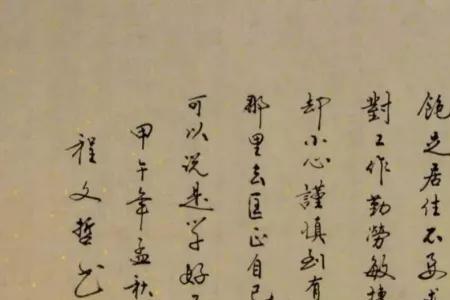 飽足居住不要求
對工作勤勞敏捷
却小心謹慎到有
那里去匡正自己
可以说是学好了
甲午年孟秋
程文哲书